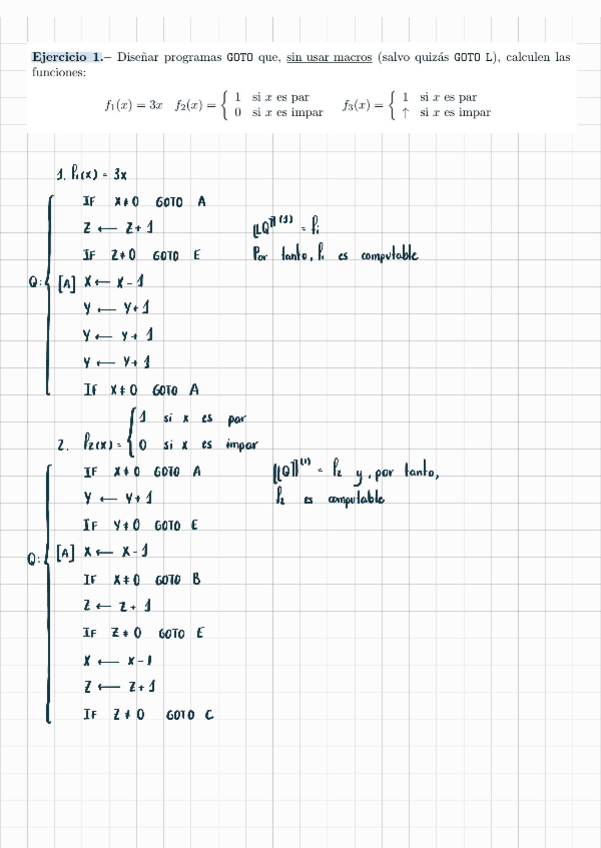 Ejercicio 1.– Diseñar programas GOTO que, sin usar macros (salvo quizás GOTO L), calculen las
funciones:
f₁(x) = 3x   f₂(x) = { 1 si x es par   f₃(x) = { 1 si x es par
0 si x es impar   ↑ si x es impar
1. f₁(x) = 3x
IF X≠0 GOTO A
Z ← Z+1
IF Z≠0 GOTO E
Q: [A] X ← X-1
Y ← Y+1
Y ← Y+1
Y ← Y+1
IF X≠0 GOTO A
⟦Q⟧⁽¹⁾ = f₁
Por tanto, f₁ es computable
2. f₂(x) = { 1 si x es par
0 si x es impar
IF X≠0 GOTO A
Y ← Y+1
IF Y≠0 GOTO E
Q: [A] X ← X-1
IF X≠0 GOTO B
Z ← Z+1
IF Z≠0 GOTO E
X ← X-1
Z ← Z+1
IF Z≠0 GOTO C
⟦Q⟧⁽¹⁾ = f₂ y, por tanto,
f₂ es computable